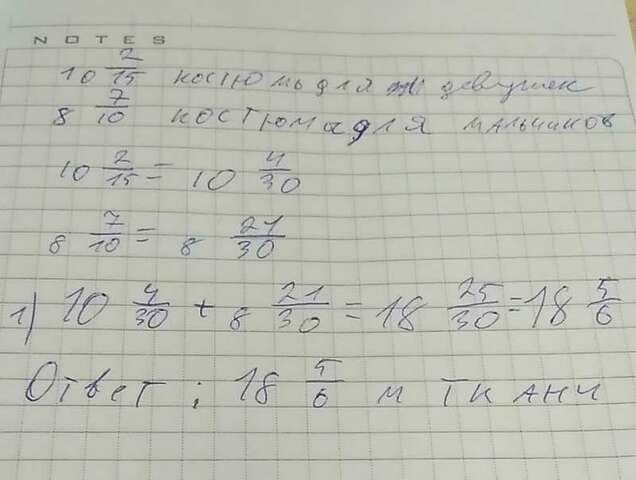 NOTES
10 2/15 костюмь для девушек
8 7/10 костюма для мальчиков
10 2/15 = 10 4/30
8 7/10 = 8 21/30
1) 10 4/30 + 8 21/30 = 18 25/30 = 18 5/6
Ответ : 18 5/6 м ткани